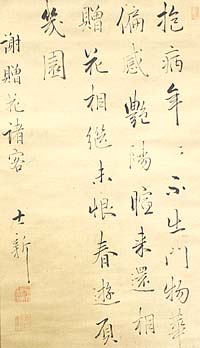 抱病年〻不出門物華
偏感艷陽暄来還相
贈花相継未恨春遊負
幾園
謝贈花諸客
士新